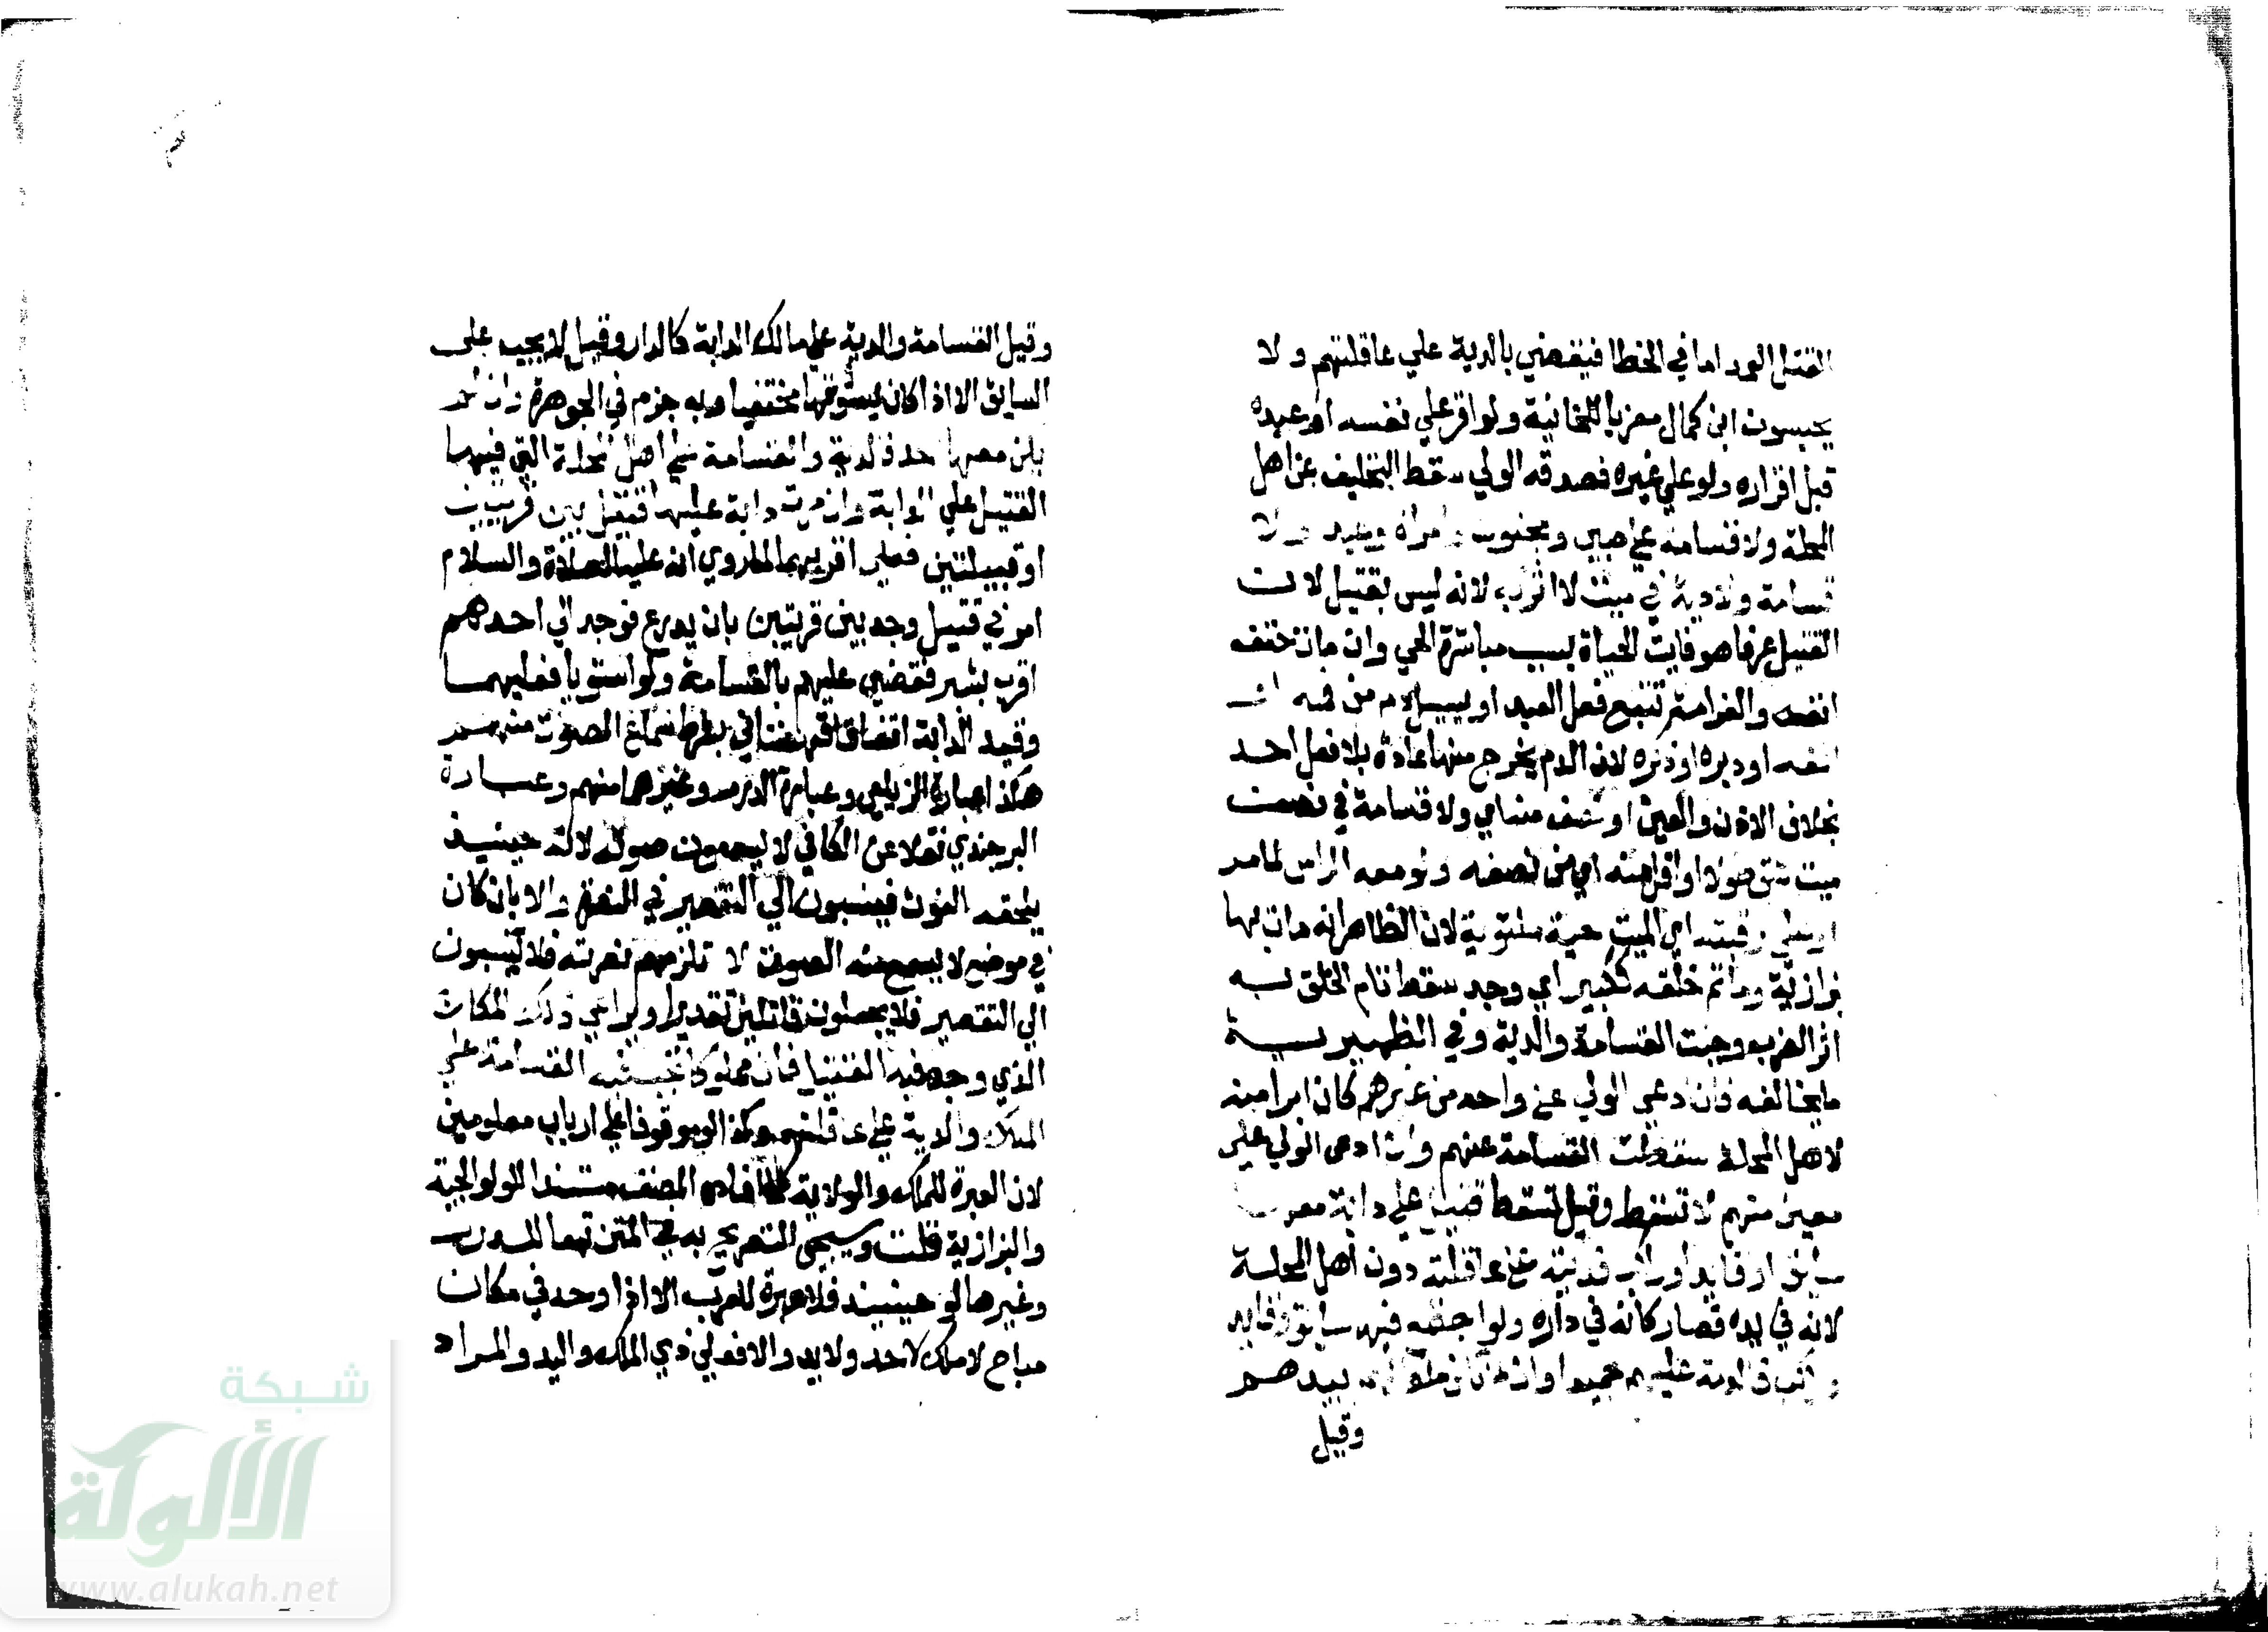 القتل العمد اما في الخطا فيقضي بالدية علي عاقلتهم ولا
يحبسون ابن كمال معزيا للخانية ولو اقر علي نفسه او عبده
قبل اقراره ولو علي غيره فصدقه الولي سقط التحليف عن اهل
المحلة ولا قسامة علي صبي ومجنون وامراة وعبد ولا
قسامة ولا دية في ميت لا اثر به لانه ليس بقتيل لان
القتيل عرفا هو فايت الحياة بسبب مباشرة الحي وان مات حتف
انفه والغرامة تتبع فعل العبد او يسيل دم من فمه او
انفه او دبره او ذكره لان الدم يخرج منها عادة بلا فعل احد
بخلاف الاذن والعين او نصف منساي ولا قسامة في نصف
ميت شق طولا او اقل منه اي من نصفه ولو معه الراس لما مر
او علي رقبته اي الميت حية ملتوية لان الظاهر انه مات بها
بزازية وما تم خلقه ككبير اي وجد سقط تام الخلق به
اثر الضرب وجبت القسامة والدية وفي الظهيرية
ما يخالفه فان ادعي الولي علي واحد من غيرهم كان ابرا منه
لاهل المحلة سقطت القسامة عنهم وان ادعى الولي علي
معين منهم لا تسقط وقيل تسقط قتيل علي دابة معها
سايق او قايد او راكب فديته علي عاقلته دون اهل المحلة
لانه في يده فصار كانه في داره ولو اجتمع فيها سايق وقايد
وراكب فالدية عليهم جميعا وان لم تكن ملكا لهم بيدهم
وقيل
وقيل القسامة والدية علي مالك الدابة كالدار وقيل لا يجب على
السايق الا اذا كان يسوقها مختفيا وبه جزم في الجوهرة وان لم
يكن معها احد فالدية والقسامة علي اهل المحلة التي فيها
القتيل علي الدابة وان مرت دابة عليها قتيل بين قريتين
او قبيلتين فعلي اقربهما لما روي انه عليه الصلاة والسلام
امر في قتيل وجد بين قريتين بان يذرع فوجد الي احدهم
اقرب بشبر فقضي عليهم بالقسامة ولو استويا فعليهما
وقيد الدابة اتفاقي قهستاني بشرط سماع الصوت منهم
هكذا عبارة الزيلعي وعبارة الدرر وغيرها منهم وعبارة
البرجندي نقلا عن الكافي لا يسمعون صوته لانه حينيذ
يلحقه الغوث فينسبون الي التقصير في النصرة والا بان كان
في موضع لا يسمع منه الصوت لا تلزمهم نصرته فلا ينسبون
الي التقصير فلا يجعلون قاتلين تقديرا ويراعي ذلك المكان
الذي وجد فيه القتيل فان مملوكا تجب فيه القسامة علي
الملاك والدية علي عاقلتهم وكذا لو موقوفا علي ارباب معلومين
لان العبرة للملك والولاية كما افاده المصنف مستندا للولوالجية
والبزازية قلت وسيجي التصريح به في المتن تبعا للدرر
وغيرها لو حينيذ فلا عبرة للقرب الا اذا وجد في مكان
مباح لا ملك لاحد ولا يد والا فعلي ذي الملك واليد والمراد
شبكة
الألوكة
www.alukah.net